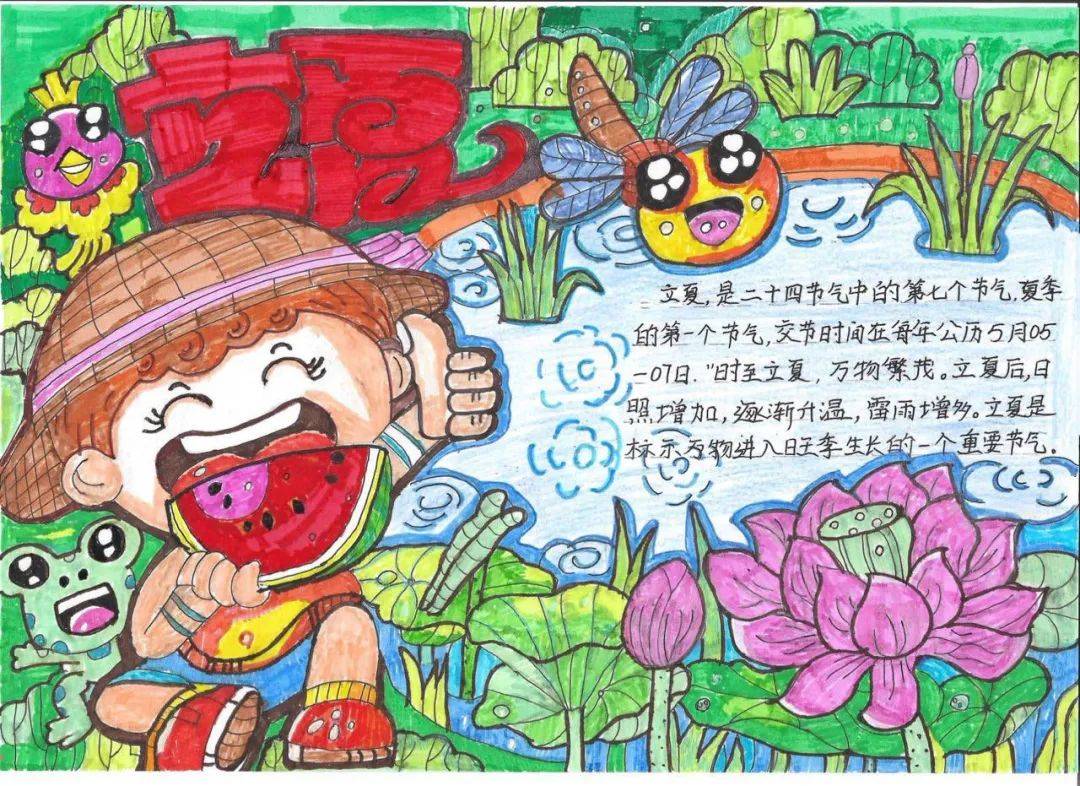 立夏
立夏,是二十四节气中的第七个节气,夏季
的第一个节气,交节时间在每年公历5月05
-07日."时至立夏,万物繁茂。立夏后,日
照增加,逐渐升温,雷雨增多。立夏是
标示万物进入旺季生长的一个重要节气.